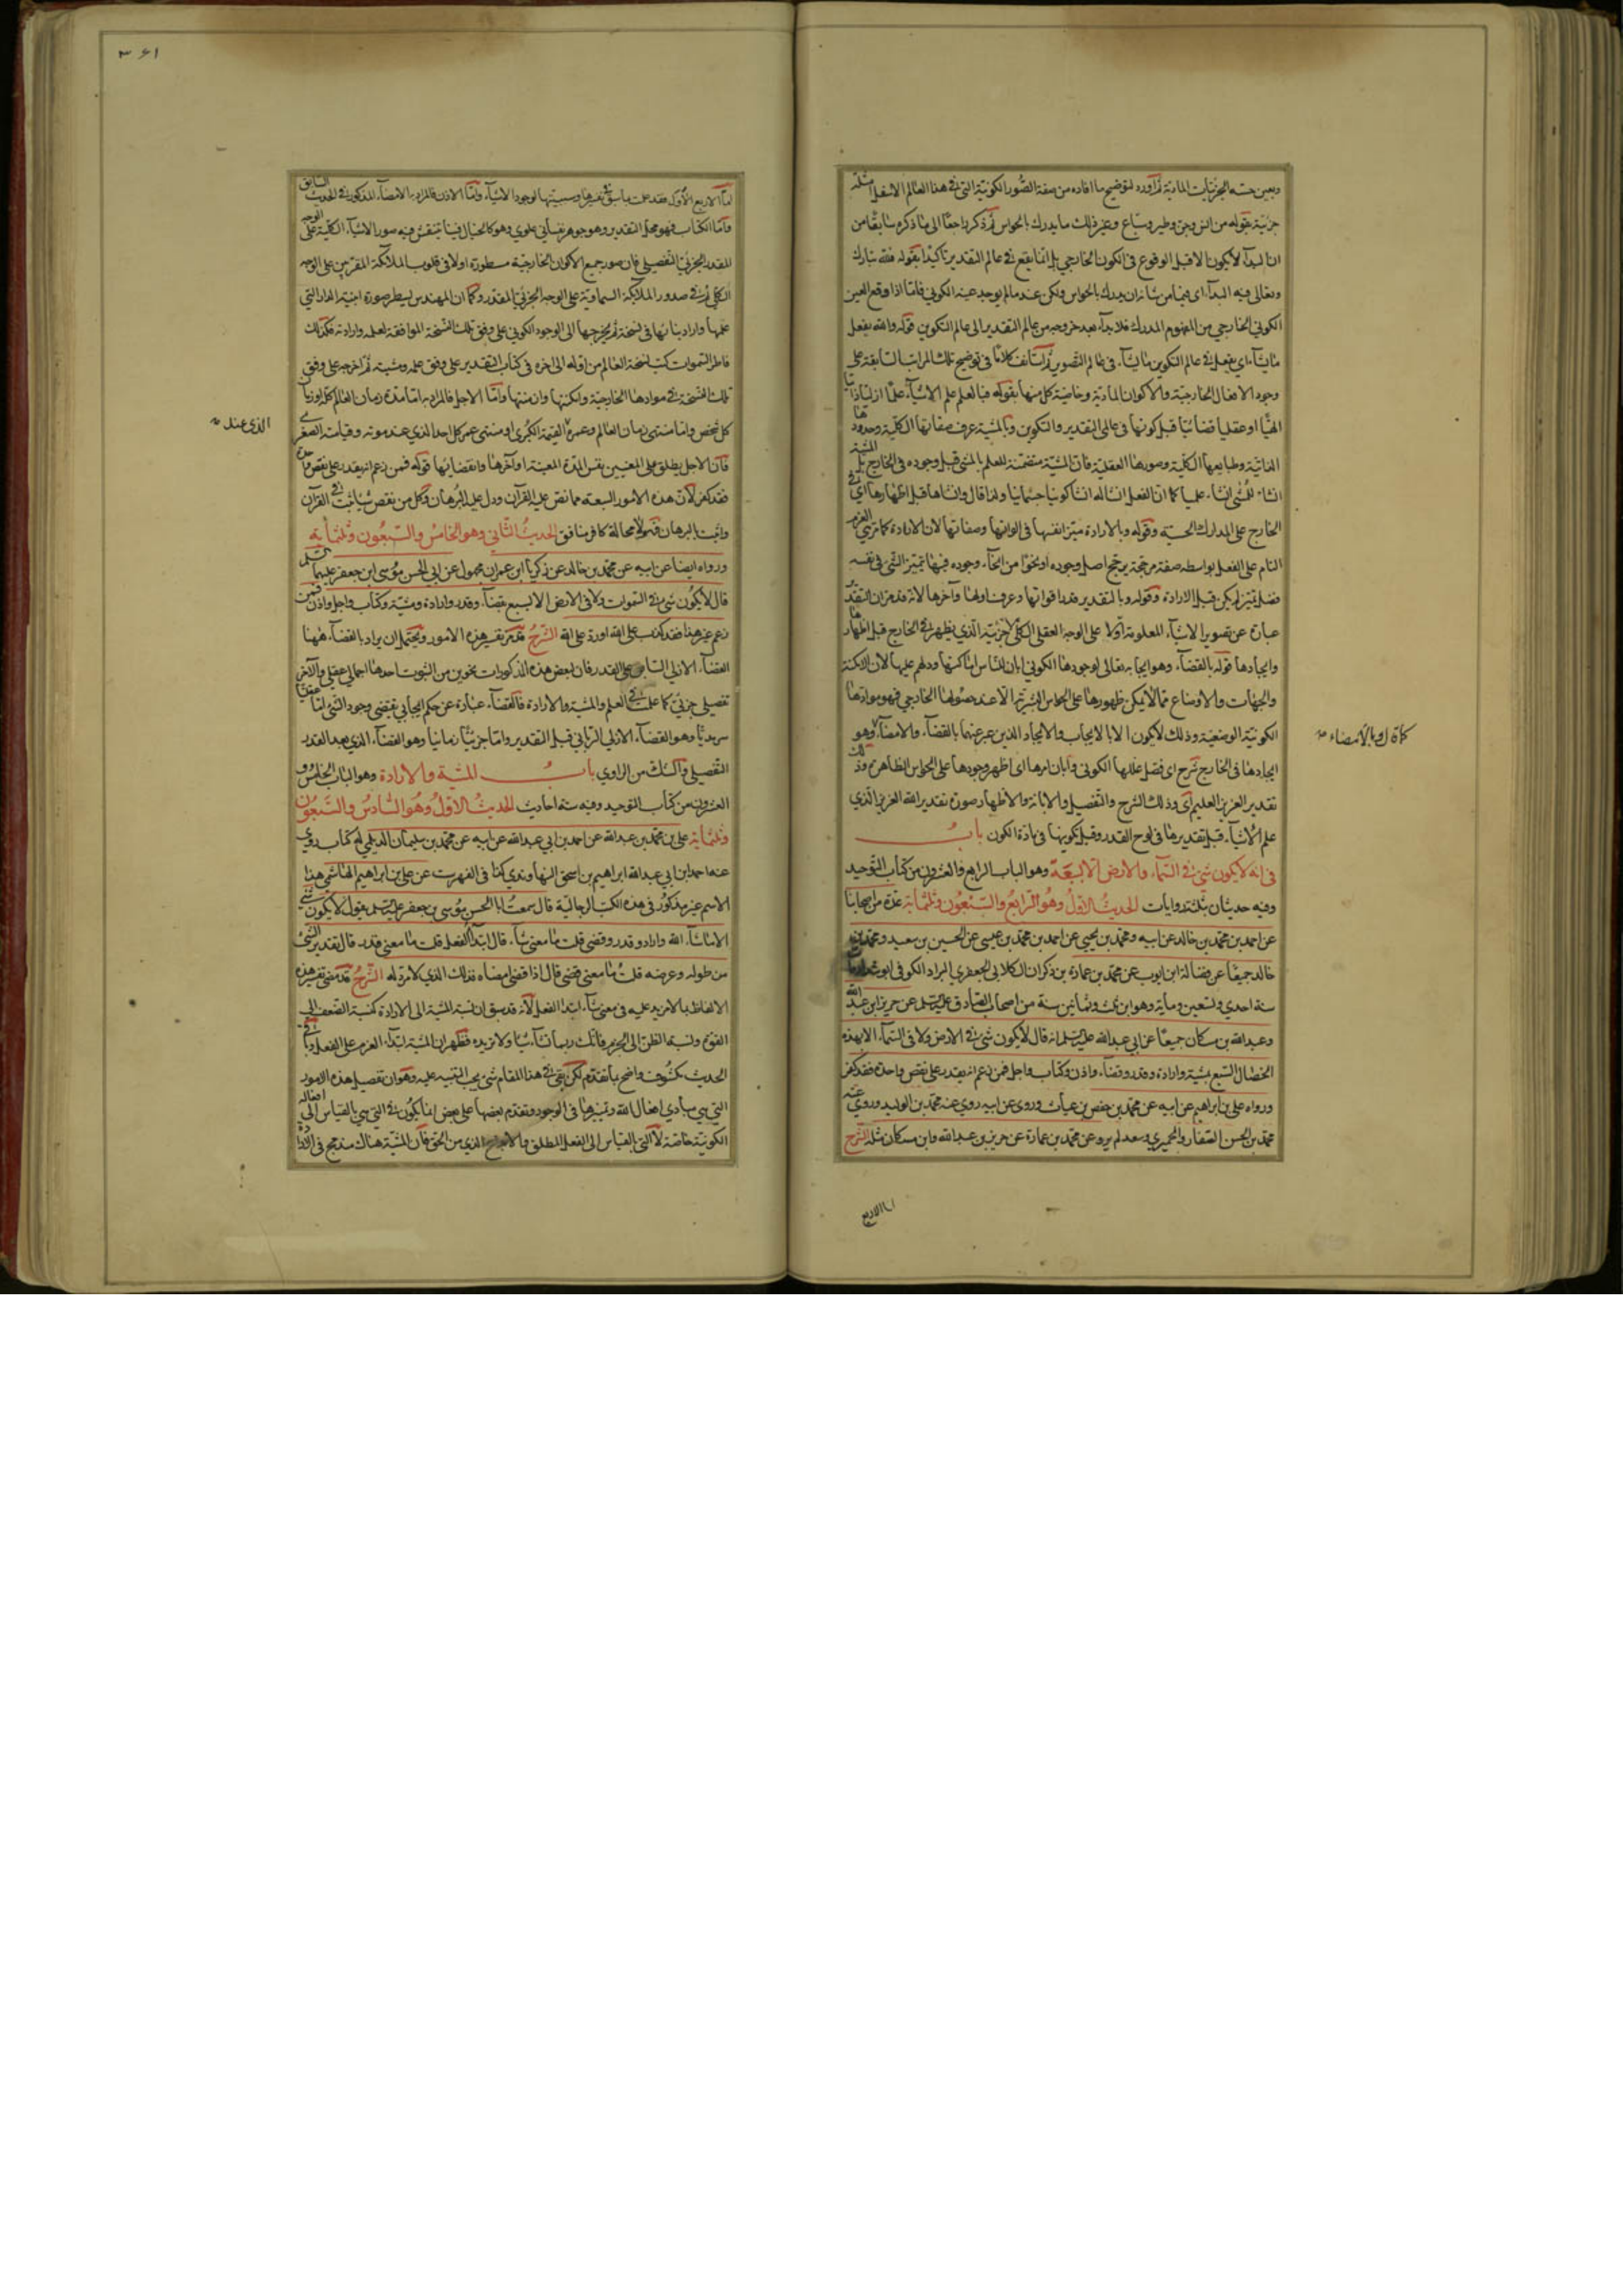 وبعين حسه الجزئيات المادية ثم أورد لتوضيح ما افاده من صفة الصور الكونية التى فى هذا العالم الاسفل امثلة
جزئية بقوله من انس وجن وطير وسباع وغير ذلك مما يدرك بالحواس ثم ذكر راجعا الى ما ذكره سابقا من
ان البدآ لا يكون الا قبل الوقوع فى الكون الخارجي بل انما يقع فى عالم التقدير تأكيدا بقوله فلله تبارك
وتعالى فيه البدآ اى فيما من شانه ان يدرك بالحواس ولكن عند مالم يوجد عينه الكوني فامّا اذا وقع العين
الكوني الخارجي من المفهوم المدرك فلا بدآ بعد خروجه من عالم التقدير الى عالم التكوين قوله والله يفعل
ما يشآء اي يفعل فى عالم التكوين ما يشآء فى عالم التصوير ثم استأنف كلامًا فى توضيح تلك المراتب السابقة على
وجود الافعال الخارجية والاكوان المادية وخاصية كل منها بقوله فبالعلم علم الاشيآء علمًا ازليا ذاتيا
الهيًا او عقليا قضائيًا قبل كونها فى عالمى التقدير والتكوين وبالمشية عرف صفاتها الكلية وحدودها
الذاتية وطبايعها الكلية وصورها العقلية فان المشية متضمنة للعلم بالمشئ قبل وجوده فى الخارج بل المشية
انشاء للشئ انشاء علميا كما ان الفعل انشاله انشا كونيا جسمانيا ولذا قال وانشاها قبل اظهارها اى فى
الخارج على المدارك الحسية وقوله وبالارادة ميز انفسها فى الوانها وصفاتها لان الارادة كما مر هى العزم
التام على الفعل بواسطه صفة مرجحة يرجح اصل وجوده او نحوًا من انحآء وجوده فبها يتميز الشئ فى نفسه
فضل تميز لم يكن قبل الارادة وقوله وبالتقدير قدر اقواتها وعرف اولها وآخرها لانه قد مر ان التقدير
عبارة عن تصوير الاشيآء المعلومة اولا على الوجه العقلى الكلّى جزئية الّذي يظهر فى الخارج قبل اظهارها
وايجادها قوله بالقضآء وهو ايجابه تعالى لوجودها الكوني ابان للناس اماكنها ودلهم عليها لان الامكنة
والجهات والاوضاع ممّا لا يمكن ظهورها على الحواس البشرية الّا عند حصولها الخارجي فى موادها
الكونية الوضعية وذلك لا يكون الا بالايجاب والايجاد الذين عبر عنهما بالقضآء والامضآء وهو
كما قال وبالامضاء
ايجادها فى الخارج شرح اى فصل عللها الكونى وابان امرها اى اظهر وجودها على الحواس الظاهرة وذلك
تقدير العزيز العليم اى وذلك الشرح والتفصيل والابانة والاظهار صورة تقدير الله العزيز الّذي
علم الاشيآء قبل تقديرها فى لوح القدر وقبل تكوينها فى مادة الكون باب
فى انه لا يكون شئ فى السّمآء والارض الا بسبعة وهو الباب الرابع والعشرون من كتاب التوحيد
وفيه حديثان بثلثه روايات الحديث الاول وهو الرابع والسّبعون وثلثمائة عدة من اصحابنا
عن احمد بن محمد بن خالد عن ابيه ومحمد بن يحيى عن احمد بن محمد بن عيسى عن الحسين بن سعيد ومحمد بن
خالد جميعًا عن فضالة ابن ايوب عن محمد بن عمارة بن ذكوان الكلابي الجعفري البزاز الكوفى ابو شداد مات
سنة احدي وتسعين ومأية وهو ابن ثلث وثمانين سنة من اصحاب الصّادق عليه السلم عن حريز ابن عبد الله
وعبد الله بن مسكان جميعًا عن ابي عبد الله عليه السّلم انه قال لا يكون شئ فى الارض ولا فى السّمآء الا بهذه
الخصال السّبع بمشية وارادة وقدر وقضآء واذن وكتاب واجل فمن زعم انه يقدر على نقض واحدة فقد كفر
ورواه علي بن ابراهيم عن ابيه عن محمد بن حفص بن غياث وروى عن ابيه روي عنه محمد بن الوليد وروي عنه
محمد بن الحسن الصفار والحميري وسعد لم يرو عن محمد بن عمارة عن حريز بن عبد الله وابن مسكان مثله الشرح
امّا الاربع
٣٦١
امّا الاربع الأول فقد علمت ما سبق فى تفسيرها وسببيتها لوجود الاشيآء وامّا الاذن فالمراد به الامضآء المذكور فى الحديث السابق
وامّا الكتاب فهو محل التقدير وهو جوهر نفسانى علوي وهو كالخيال فينا ينتقش فيه صور الاشيآء الكلية على الوجه
المقدر الجزئى التفصيلى فان صور جميع الاكوان الخارجية مسطورة اولا فى قلوب الملآئكة المقربين على الوجه
الكلّى ثم فى صدور الملآئكة السماوية على الوجه الجزئي المقدر وكما ان المهندس يسطر صورة ابنية الدار التي
علمها واراد بنائها فى نسخة ثم يخرجها الى الوجود الكوني على وفق تلك النسخة الموافقة لعلمه وارادته فكذلك
فاطر السّموات كتب نسخة العالم من اوله الى اخره فى كتاب التقدير على وفق علمه ومشيته ثم اخرجه على وفق
تلك النسخة فى موادها الخارجية وامكنتها وازمنتها وامّا الاجل فالمراد به امّا مدة زمان العالم كلّه او زمان
كل شخص وامّا منتهى زمان العالم وعمره القيمة الكبرى او منتهى عمر كل احد الذي عند موته وقيامته الصغرى
الذى عنده
فان الاجل يطلق على المعنيين نفس المدة المعينة وآخرها وانقضائها قوله فمن زعم انه يقدر على نقض واحدة
فقد كفر لان هذه الامور السبعة مما نص عليه القرآن ودل عليه البرهان وكل من نقض شيا ثبت فى القرآن
واثبت بالبرهان فهو لا محالة كافر منافق الحديث الثّاني وهو الخامس والسّبعون وثلثمائة
ورواه ايضا عن ابيه عن محمد بن خالد عن زكريا ابن عمران مجهول عن ابى الحسن موسى ابن جعفر عليهما السلم
قال لا يكون شئ فى السّموات ولا فى الارض الا بسبع بقضآء وقدر وارادة ومشية وكتاب واجل واذن فمن
زعم غير هذا فقد كذب على الله او رد على الله الشّرح قد مر تفسير هذه الامور ويحتمل ان يراد بالقضآء ههنا
القضآء الازلى السابق على القدر فان لبعض هذه المذكورات نحوين من الثبوت احدهما اجمالي عقلي والآخر
تفصيلي جزئي كما علمت فى العلم والمشية والارادة فالقضآء عبارة عن حكم ايجابي يقتضى وجود الشئ امّا عقليا
سرمديًا وهو القضآء الازلي الرباني قبل التقدير وامّا جزئيًا زمانيا وهو القضآء الذي بعد القدر
التّفصيلي والشك من الراوي باب المشية والارادة وهو الباب الخامس و
العشرون من كتاب التوحيد وفيه ستة احاديث الحديث الاول وهو السّادس والسّبعون
وثلثمائة علي بن محمد بن عبد الله عن احمد بن ابي عبد الله عن ابيه عن محمد بن سليمان الديلمي له كتاب روي
عنه احمد ابن ابي عبد الله ابراهيم بن اسحق النهاوندي كذا فى الفهرست عن علي بن ابراهيم الهاشمي هذا
الاسم غير مذكور فى هذه الكتب الرجالية قال سمعت ابا الحسن موسى بن جعفر عليه السلم يقول لا يكون شئ
الا ما شآء الله واراد وقدر وقضى قلت ما معنى شآء قال ابتدآ الفعل قلت ما معنى قدر قال تقدير الشئ
من طوله وعرضه قلت ما معنى قضى قال اذا قضى امضاه فذلك الذي لا مرد له الشرح قد مضى تفسير هذه
الالفاظ بما لا مزيد عليه فى معنى شآء ابتدا الفعل لانه قد سبق ان نسبة المشية الى الارادة كنسبة الضعف الى
القوة ونسبة الظن الى الجزم فانك ربما تشآء شيا ولا تريده فظهر ان المشية ابتدآء العزم على الفعل وباقى
الحديث مكشوف واضح بما تقدم لكن بقى فى هذا المقام شئ يجب التنبيه عليه وهو ان تفصيل هذه الامور
التى هى مبادي افعال الله وتميزها فى الوجود وتقدم بعضها على بعض انما يكون فى التي هى بالقياس الى افعاله
الكونية خاصة لا التى بالقياس الى الفعل المطلق والابداع الذي من الحق فان المشية هناك مندمج فى الارادة